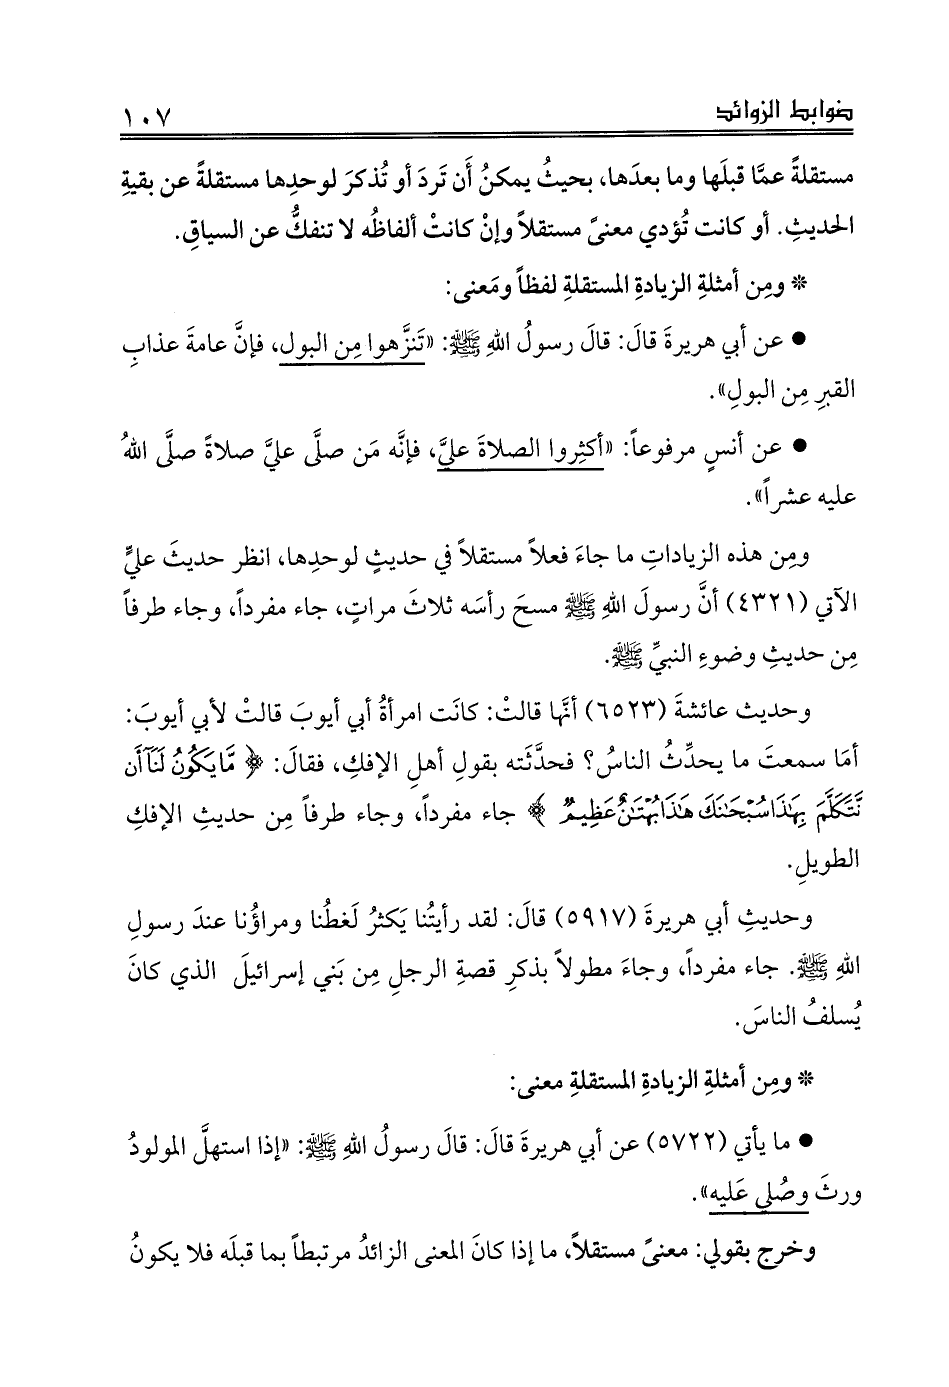 ضوابط الزوائد ١٠٧
مستقلةً عمَّا قبلَها وما بعدَها، بحيثُ يمكنُ أَن تَردَ أو تُذكرَ لوحدِها مستقلةً عن بقيةِ
الحديثِ. أو كانت تُؤدي معنىً مستقلاً وإنْ كانتْ ألفاظُه لا تنفكُّ عن السياقِ.
* ومِن أمثلةِ الزيادةِ المستقلةِ لفظاً ومَعنى:
● عن أبي هريرةَ قالَ: قالَ رسولُ اللهِ ﷺ: «تَنزَّهوا مِن البول، فإنَّ عامةَ عذابِ
القبرِ مِن البولِ».
● عن أنسٍ مرفوعاً: «أكثِروا الصلاةَ عليَّ، فإنَّه مَن صلَّى عليَّ صلاةً صلَّى اللهُ
عليه عشراً».
ومِن هذه الزياداتِ ما جاءَ فعلاً مستقلاً في حديثٍ لوحدِها، انظر حديثَ عليٍّ
الآتي (٤٣٢١) أنَّ رسولَ اللهِ ﷺ مسحَ رأسَه ثلاثَ مراتٍ، جاء مفرداً، وجاء طرفاً
مِن حديثِ وضوءِ النبيِّ ﷺ.
وحديث عائشةَ (٦٥٢٣) أنَّها قالتْ: كانَت امرأةُ أبي أيوبَ قالتْ لأبي أيوبَ:
أمَا سمعتَ ما يحدِّثُ الناسُ؟ فحدَّثَته بقولِ أهلِ الإفكِ، فقالَ: ﴿ مَّا يَكُونُ لَنَآ أَن
نَّتَكَلَّمَ بِهَٰذَا سُبْحَٰنَكَ هَٰذَا بُهْتَٰنٌ عَظِيمٌ ﴾ جاء مفرداً، وجاء طرفاً مِن حديثِ الإفكِ
الطويلِ.
وحديثِ أبي هريرةَ (٥٩١٧) قالَ: لقد رأيتُنا يَكثرُ لَغطُنا ومراؤُنا عندَ رسولِ
اللهِ ﷺ. جاء مفرداً، وجاءَ مطولاً بذكرِ قصةِ الرجلِ مِن بَني إسرائيلَ الذي كانَ
يُسلفُ الناسَ.
* ومِن أمثلةِ الزيادةِ المستقلةِ معنى:
● ما يأتي (٥٧٢٢) عن أبي هريرةَ قالَ: قالَ رسولُ اللهِ ﷺ: «إذا استهلَّ المولودُ
ورثَ وصُلي عَليه».
وخرج بقولي: معنىً مستقلاً، ما إذا كانَ المعنى الزائدُ مرتبطاً بما قبلَه فلا يكونُ